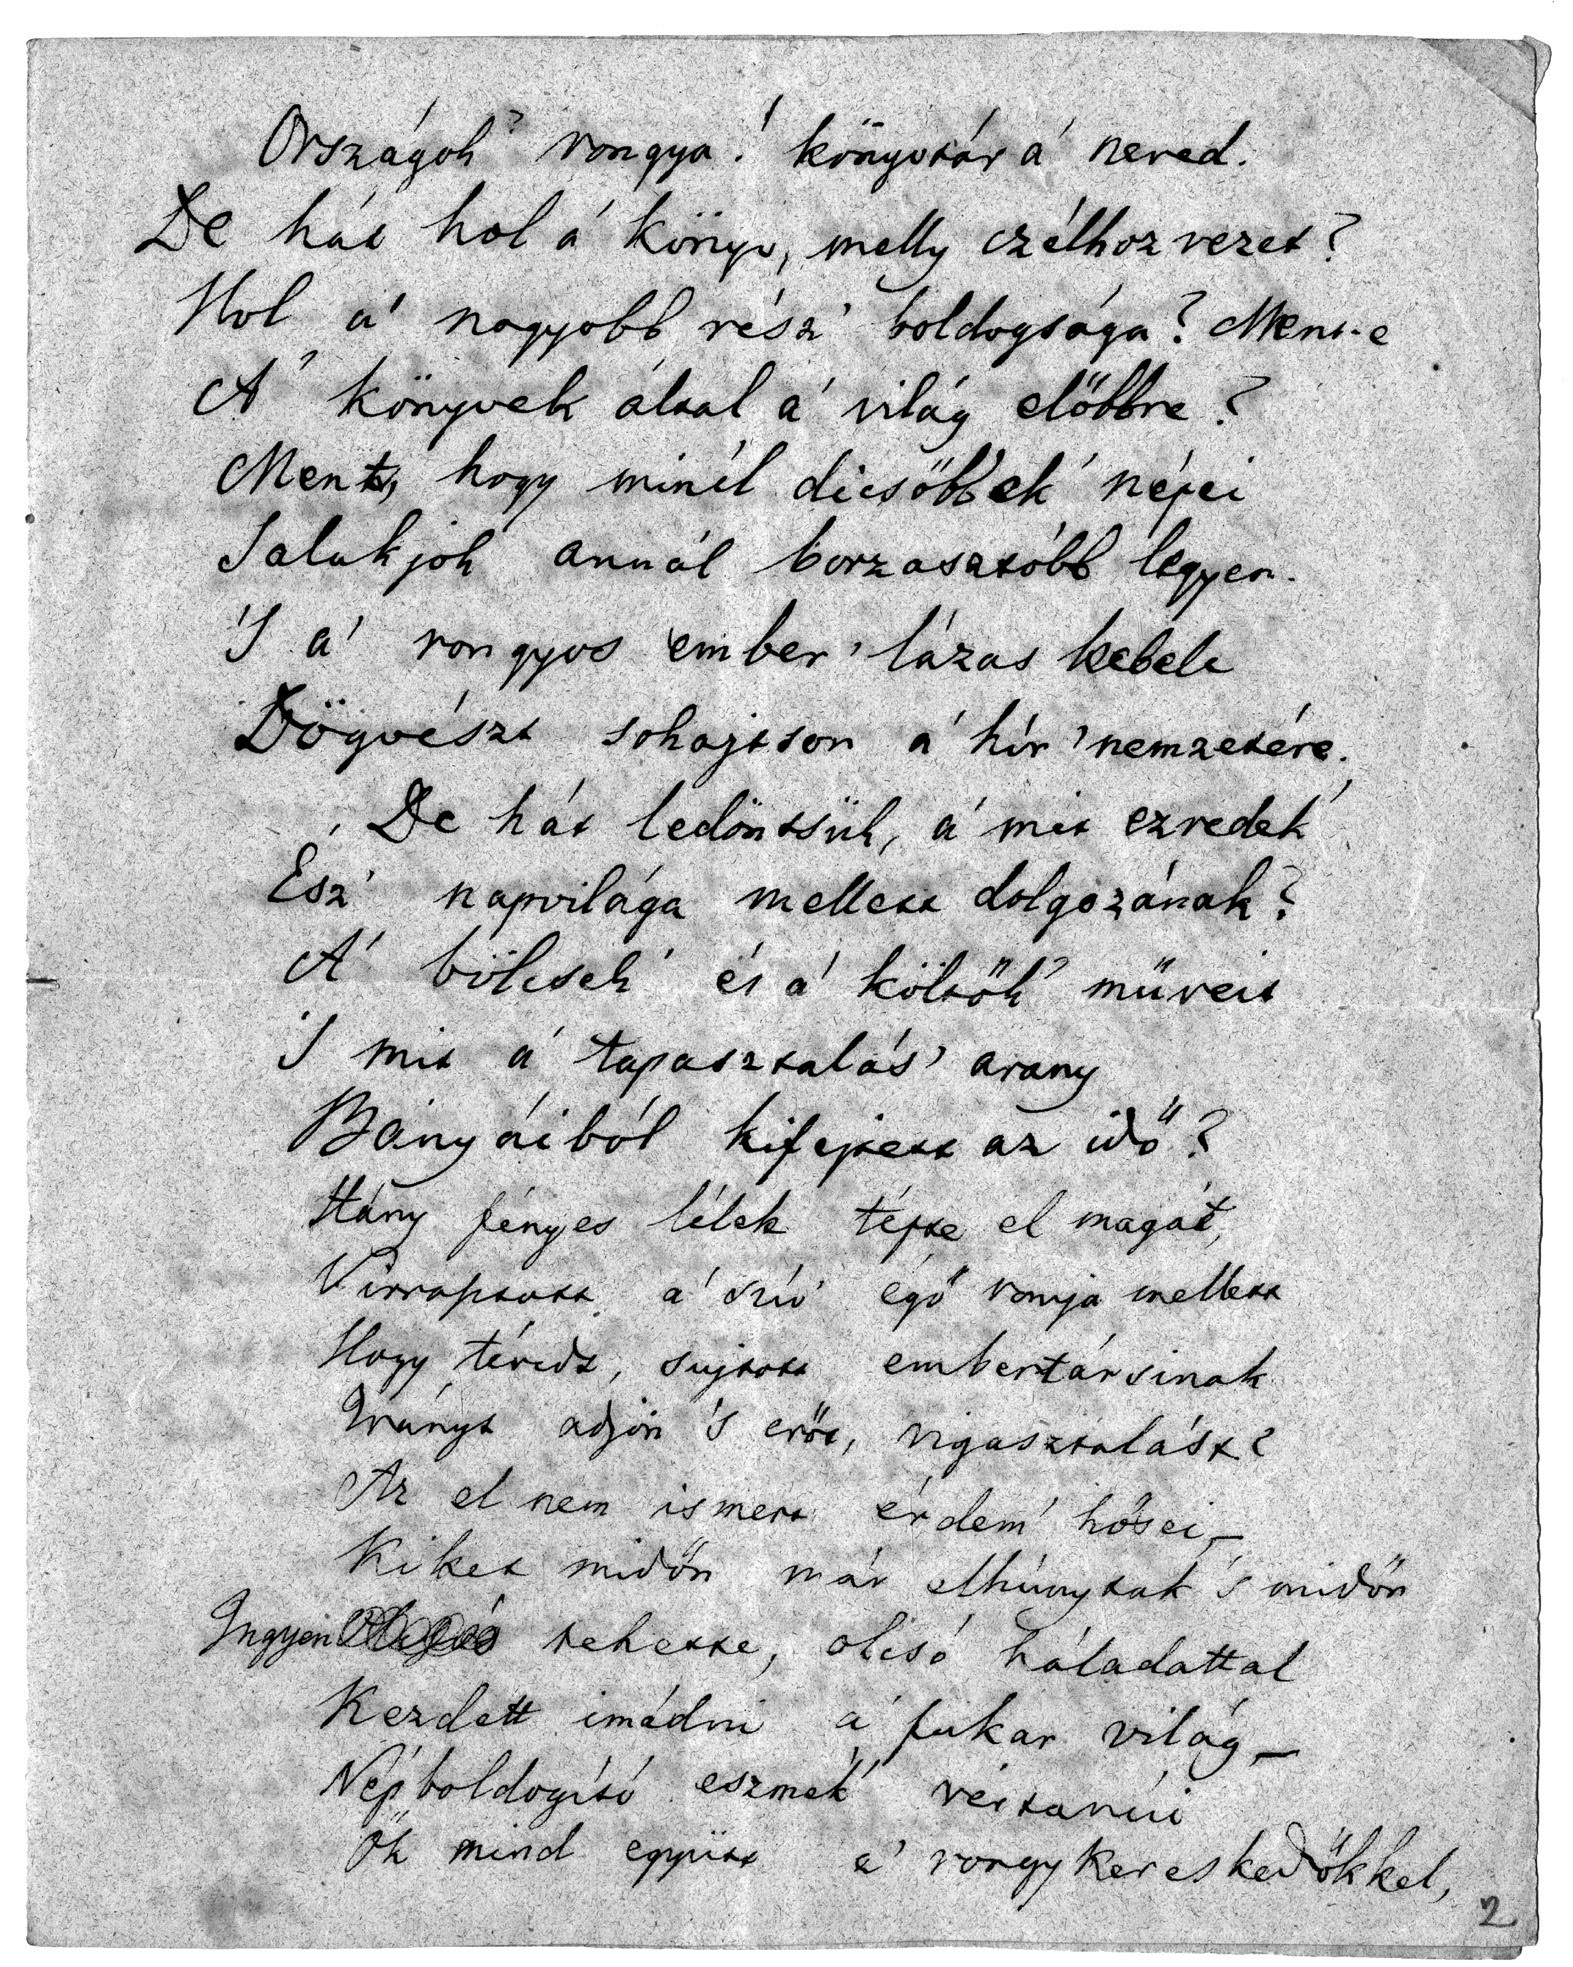 Országok' rongya! könyvtár a' neved.
De hát hol a' könyv, melly czélhoz vezet?
Hol a' nagyobb rész' boldogsága? Ment-e
A' könyvek által a' világ előbbre?
Ment, hogy minél dicsőbbek' népei
Salakjok annál borzasztóbb legyen.
'S a' rongyos ember' lázas kebele
Dögvészt sohajtson a' hír' nemzetére.
De hát ledöntsük, a' mit ezredek'
Ész' napvilága mellett dolgozának?
A' bölcsek' és a' költők' műveit
'S mit a' tapasztalás' arany
Bányáiból kifejtett az idő?
Hány fényes lélek tépte el magát,
Virrasztott a' szív' égő romja mellett
Hogy tévedt, sujtott embertársinak
Irányt adjon 's erőt, vigasztalást?
Az el nem ismert érdem' hősei –
Kiket midőn már elhúnytak 's midőn
Ingyen tehette, olcsó háladattal
Kezdett imádni a' fukar világ –
Népboldogító eszmék' vértanúi
Ők mind együtt e' rongykereskedőkkel,
2